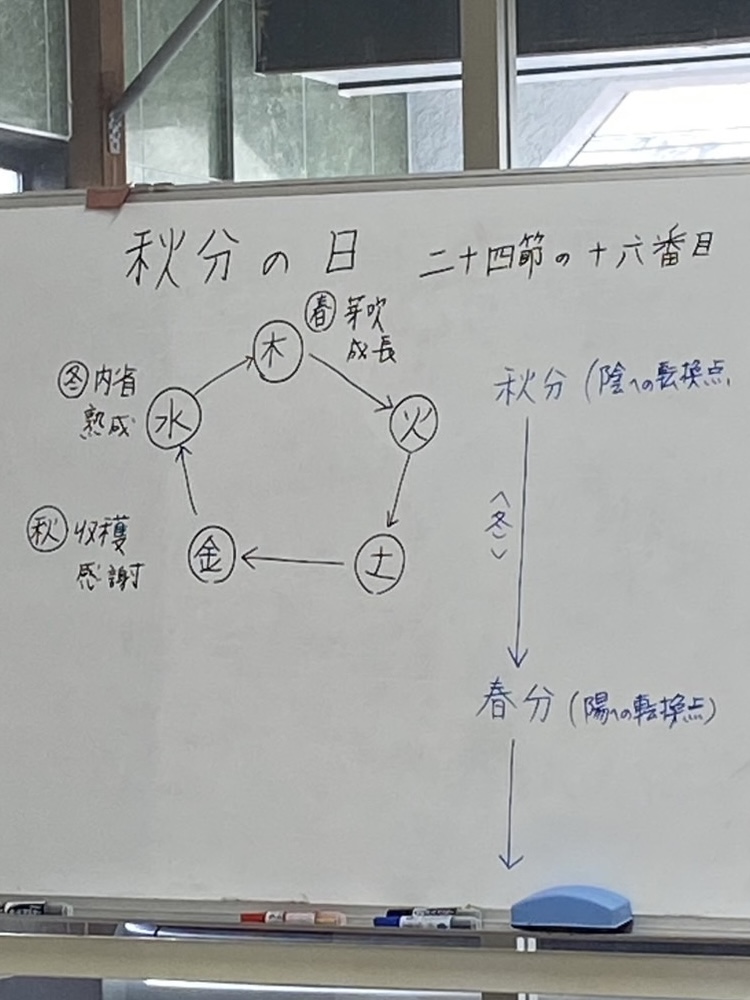 秋分の日 二十四節の十六番目
春 芽吹
成長
木
冬 内省
熟成
水
火
秋 収穫
感謝
金
土
秋分(陰への転換点
<冬>
春分(陽への転換点)